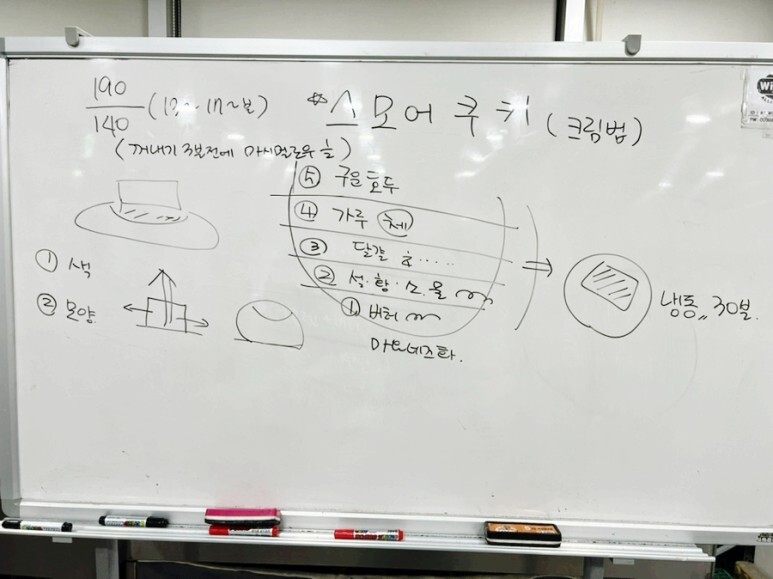 190
140 (13~17~분) ☆스모어 쿠키 (크림법)
(꺼내기 3분전에 마시멜로우 올)
⑤ 구운 호두
④ 가루 (체)
③ 달걀 ......
② 설.황.소.물
① 버터
마요네즈화.
① 색
② 모양
⇒ 냉동,, 30분.